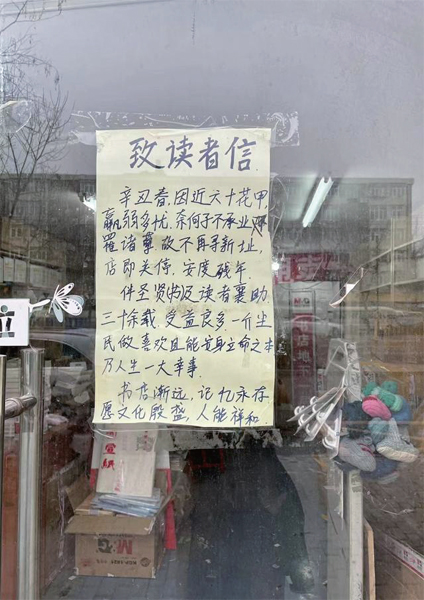 致读者信
辛丑春,因近六十花甲,
羸弱多忧,奈何子不承业,
诸尊故不再寻新址,
店即关停,安度残年.
伴圣贤书及读者襄助
三十余载,受益良多一介尘
民做喜欢且能安身立命之本
乃人生一大幸事.
书店渐远,记忆永存
愿文化殷盛,人能祥和
店地
宣纸
M&G